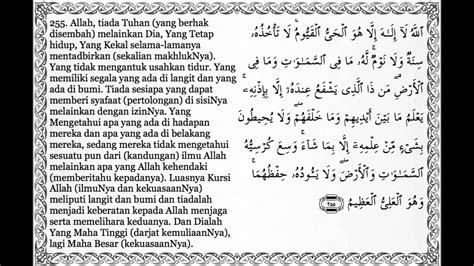 255. Allah, tiada Tuhan (yang berhak
disembah) melainkan Dia, Yang Tetap
hidup, Yang Kekal selama-lamanya
mentadbirkan (sekalian makhlukNya).
Yang tidak mengantuk usahkan tidur. Yang
memiliki segala yang ada di langit dan yang
ada di bumi. Tiada sesiapa yang dapat
memberi syafaat (pertolongan) di sisiNya
melainkan dengan izinNya. Yang
Mengetahui apa yang ada di hadapan
mereka dan apa yang ada di belakang
mereka, sedang mereka tidak mengetahui
sesuatu pun dari (kandungan) ilmu Allah
melainkan apa yang Allah kehendaki
(memberitahu kepadanya). Luasnya Kursi
Allah (ilmuNya dan kekuasaanNya)
meliputi langit dan bumi dan tiadalah
menjadi keberatan kepada Allah menjaga
serta memelihara keduanya. Dan Dialah
Yang Maha Tinggi (darjat kemuliaanNya),
lagi Maha Besar (kekuasaanNya)
ٱللَّهُ لَآ إِلَـٰهَ إِلَّا هُوَ ٱلْحَىُّ ٱلْقَيُّومُ ۚ لَا تَأْخُذُهُۥ
سِنَةٌ وَلَا نَوْمٌ ۚ لَّهُۥ مَا فِى ٱلسَّمَـٰوَٰتِ وَمَا فِى
ٱلْأَرْضِ ۗ مَن ذَا ٱلَّذِى يَشْفَعُ عِندَهُۥٓ إِلَّا بِإِذْنِهِۦ ۚ
يَعْلَمُ مَا بَيْنَ أَيْدِيهِمْ وَمَا خَلْفَهُمْ ۖ وَلَا يُحِيطُونَ
بِشَىْءٍ مِّنْ عِلْمِهِۦٓ إِلَّا بِمَا شَآءَ ۚ وَسِعَ كُرْسِيُّهُ
ٱلسَّمَـٰوَٰتِ وَٱلْأَرْضَ ۖ وَلَا يَـُٔودُهُۥ حِفْظُهُمَا ۚ
وَهُوَ ٱلْعَلِىُّ ٱلْعَظِيمُ ٢٥٥